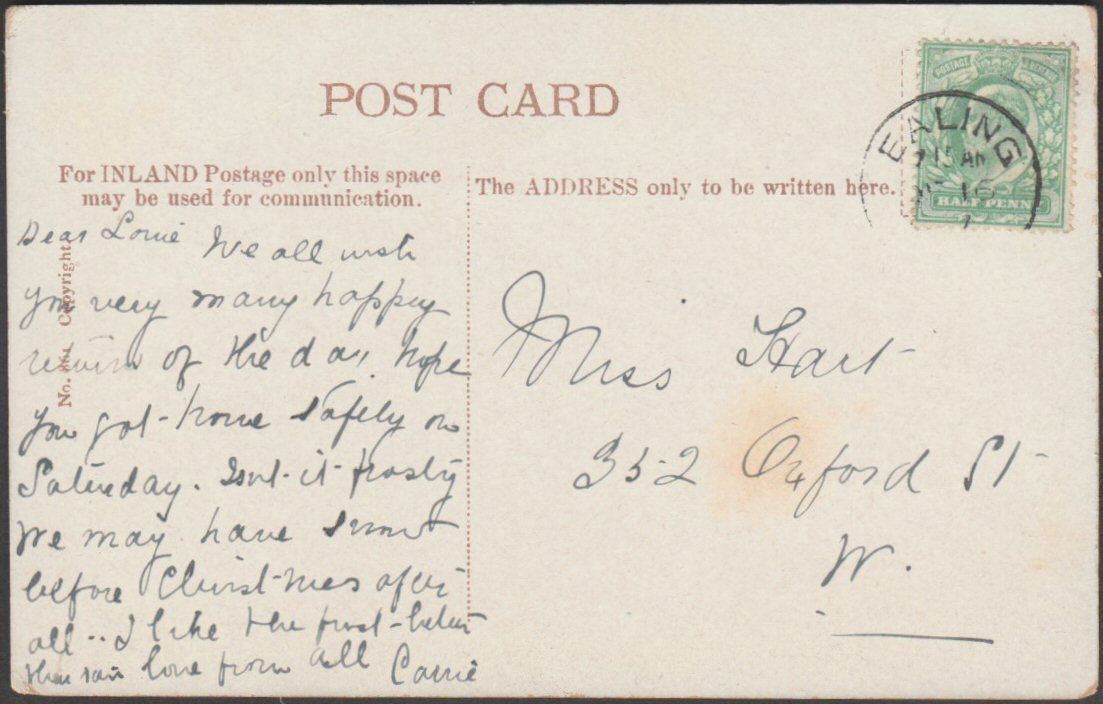 POST CARD
For INLAND Postage only this space
may be used for communication.
The ADDRESS only to be written here.
POSTAGE
EALING
15 AM
16
HALF PENNY
No. Copyright
Dear We all wish
you very many happy
return of the day. hope
you got home safely on
Saturday. Isnt it frosty
We may have snow
before Christmas after
all .. I like the frost better
than rain love from all Carrie
Miss Hart
352 Oxford St
W.